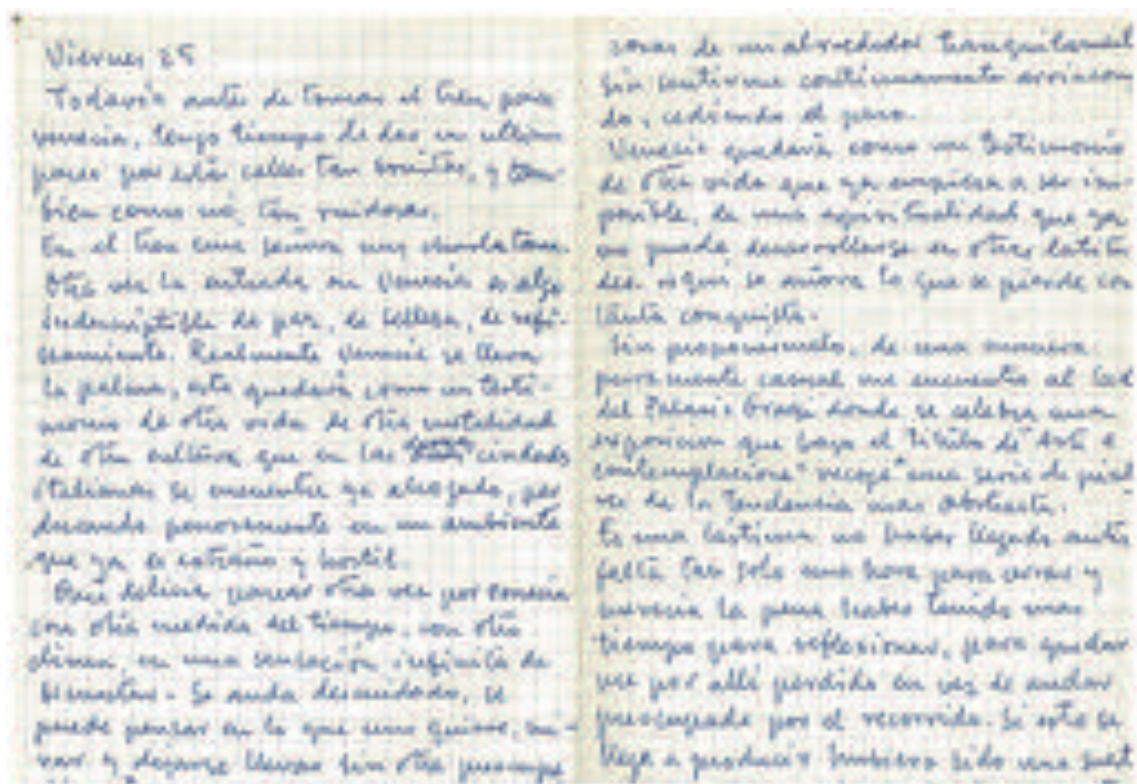 Viernes 25
Todavía antes de tomar el tren para
venecia, tengo tiempo de dar un ultimo
paseo por estas calles tan bonitas, y tam
bien como nó, tan ruidosas.
En el tren una señora muy charlatana.
Otra vez la entrada en Venecia es algo
indescriptible de paz, de belleza, de refi-
namiento. Realmente Venecia se lleva
la palma, esta quedará como un testi-
monio de otra vida de otra mentalidad
de otra cultura que en las ciudades
italianas se encuentra ya ahogado, per
durando penosamente en un ambiente
que ya es extraño y hostil.
Que delicia pasear otra vez por venecia
con otra medida del tiempo, con otro
clima, en una sensación infinita de
bienestar. Se anda descuidado, se
puede pensar en lo que uno quiere, mi-
rar y dejarse llevar sin otra preocupa
zonas de un alrededor
sin sentirme continuamente arrincona
do, cediendo el paso.
Venecia quedará como un testimonio
de otra vida que ya empieza a ser im-
posible, de una espiritualidad que ya
no puede desarrollarse en otras latitu
des. Aqui se añora lo que se pierde con
tanta conquista.
Sin proponermelo, de una manera
puramente casual me encuentro al lado
del Palacio Grassi donde se celebra una
exposicion que bajo el titulo de "Arte e
contemplacione" recoge una serie de pinto
res de la tendencia mas abstracta.
Es una lástima no haber llegado antes
falta tan solo una hora para cerrar y
merecia la pena haber tenido mas
tiempo para reflexionar, para quedar
me por allí perdido en vez de andar
preocupado por el recorrido. Si esto se
llega a producir hubiera sido una